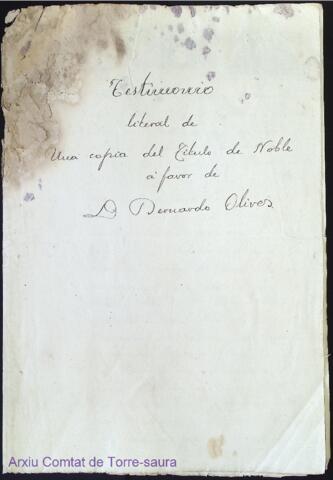 Testimonio
literal de
Una copia del Título de Noble
a favor de
D Bernardo Olives
Arxiu Comtat de Torre-saura